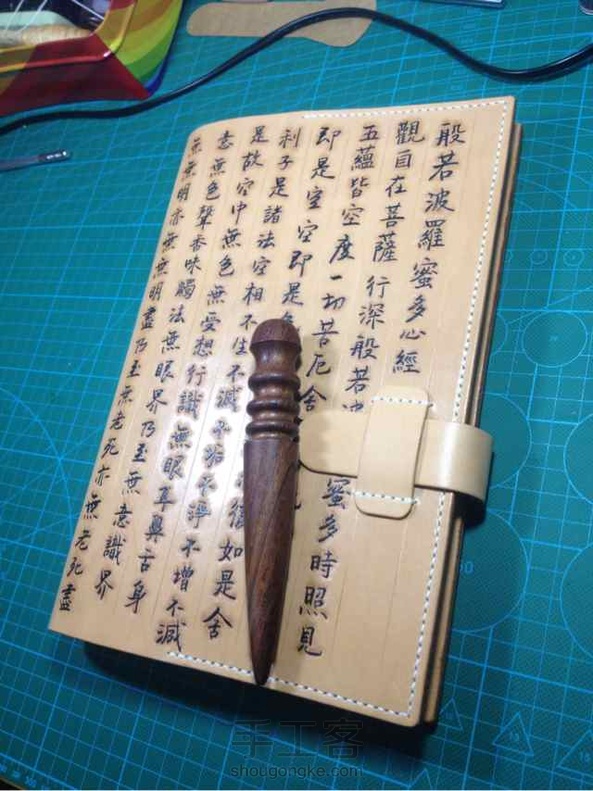 般若波羅蜜多心經
觀自在菩薩行深般若波蜜多時照見
五蘊皆空度一切苦厄舍
即是空空即是復如是舍
利子是諸法空相不生不減不垢不淨不增不減
是故空中無色無受想行識無眼耳鼻舌身
意無色聲香味觸法無眼界乃至無意識界
無無明亦無無明盡乃至無老死亦無老死盡
手工客
shougongke.com